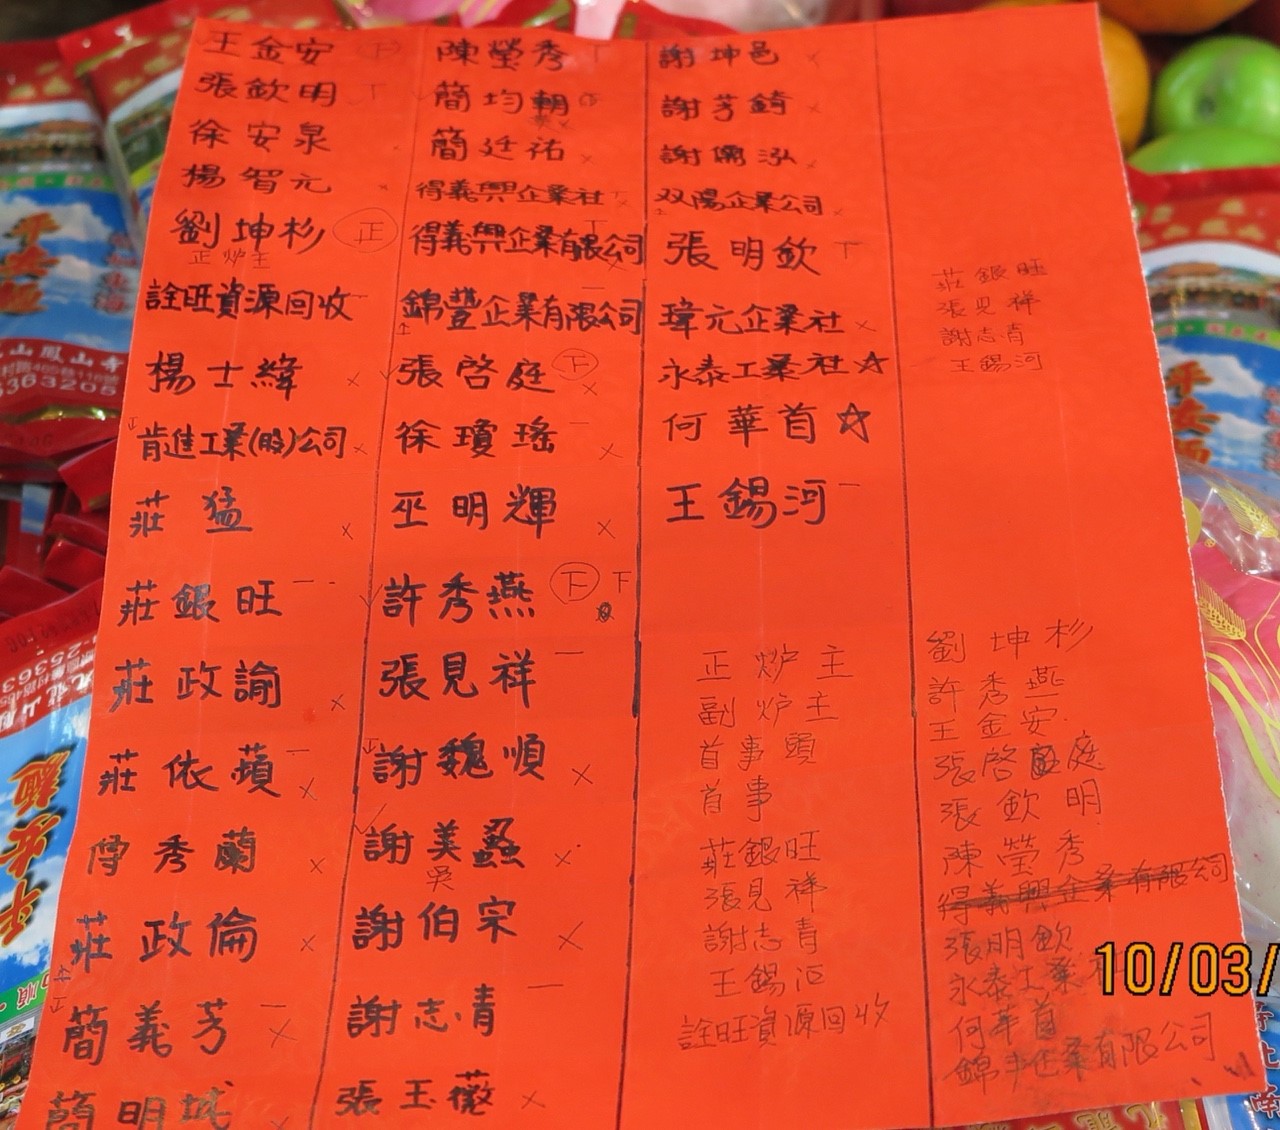 王金安 下
張欽明 下
徐安泉
楊智元
劉坤杉 正
正炉主
詮旺資源回收
楊士緯
肯進工業(股)公司
莊猛
莊銀旺
莊政諭
莊依蘋
傅秀蘭
莊政倫
簡義芳
簡明城
陳瑩秀
簡均朝
簡廷祐
得義興企業社
得義興企業有限公司
錦豐企業有限公司
張啓庭 下
徐瓊瑤
巫明輝
許秀燕 下 下
張見祥
謝魏順
謝美
吳
謝伯宗
謝志青
張玉薇
謝坤邑
謝芳錡
謝儒泓
双陽企業公司
張明欽 下
瑋元企業社
永泰工業社☆
何華首☆
王錫河
正炉主
副炉主
首事頭
首事
莊銀旺
張見祥
謝志青
王錫河
詮旺資源回收
莊銀旺
張見祥
謝志青
王錫河
劉坤杉
許秀燕
王金安
張啓庭
張欽明
陳瑩秀
得義興企業有限公司
張明欽
永泰工業
何華首
錦丰企業有限公司
10/03/
山鳳山寺
363205